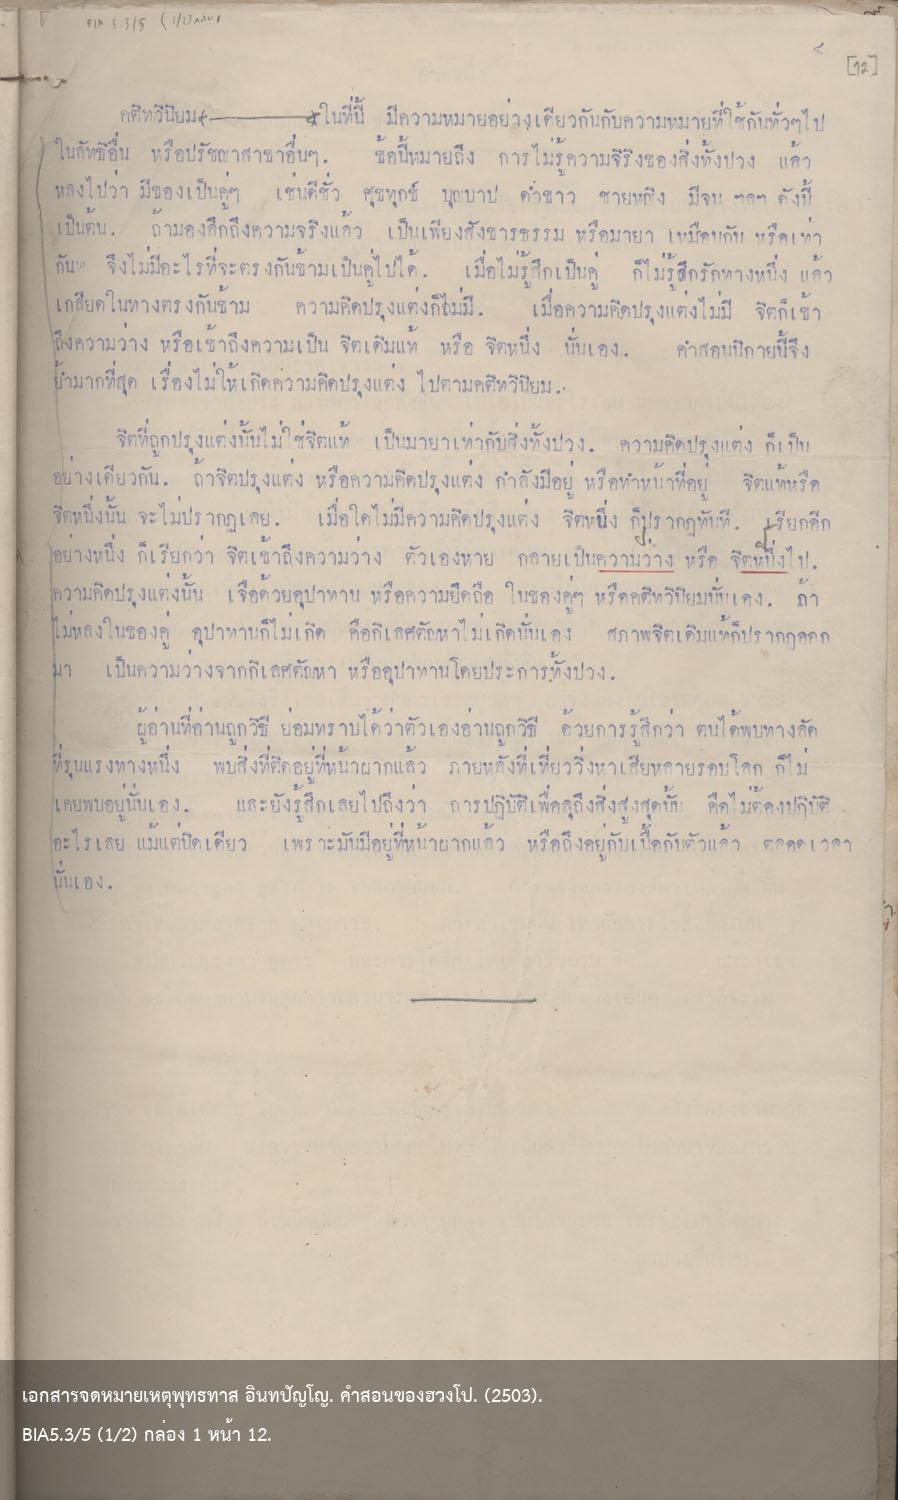 BIA 5.3/5 (1/2) กล่อง 1
๔
[12]
คติทวินิยม ในที่นี้ มีความหมายอย่างเดียวกันกับความหมายที่ใช้กันทั่วๆไป
ในลัทธิอื่น หรือปรัชญาสาขาอื่นๆ. ข้อนี้หมายถึง การไม่รู้ความจริงของสิ่งทั้งปวง แล้ว
หลงไปว่า มีของเป็นคู่ๆ เช่นดีชั่ว ศุขทุกข์ บุญบาป ดำขาว ชายหญิง มีจน ฯลฯ ดังนี้
เป็นต้น. ถ้ามองลึกถึงความจริงแล้ว เป็นเพียงสังขารธรรม หรือมายา เหมือนกัน หรือเท่า
กันห จึงไม่มีอะไรที่จะตรงกันข้ามเป็นคู่ไปได้. เมื่อไม่รู้สึกเป็นคู่ ก็ไม่รู้สึกรักทางหนึ่ง แล้ว
เกลียดในทางตรงกันข้าม ความคิดปรุงแต่งก็ไม่มี. เมื่อความคิดปรุงแต่งไม่มี จิตก็เข้า
ถึงความว่าง หรือเข้าถึงความเป็น จิตเดิมแท้ หรือ จิตหนึ่ง นั่นเอง. คำสอนนิกายนี้จึง
ย้ำมากที่สุด เรื่องไม่ให้เกิดความคิดปรุงแต่ง ไปตามคติทวินิยม.
จิตที่ถูกปรุงแต่งนั้นไม่ใช่จิตแท้ เป็นมายาเท่ากับสิ่งทั้งปวง. ความคิดปรุงแต่ง ก็เป็น
อย่างเดียวกัน. ถ้าจิตปรุงแต่ง หรือความคิดปรุงแต่ง กำลังมีอยู่ หรือทำหน้าที่อยู่ จิตแท้หรือ
จิตหนึ่งนั้น จะไม่ปรากฏเลย. เมื่อใดไม่มีความคิดปรุงแต่ง จิตหนึ่ง ก็ปรากฏทันที. เรียกอีก
อย่างหนึ่ง ก็เรียกว่า จิตเข้าถึงความว่าง ตัวเองหาย กลายเป็นความว่าง หรือ จิตหนึ่งไป.
ความคิดปรุงแต่งนั้น เจือด้วยอุปาทาน หรือความยึดถือ ในของคู่ๆ หรือคติทวินิยมนั่นเอง. ถ้า
ไม่หลงในของคู่ อุปาทานก็ไม่เกิด คือกิเลสตัณหาไม่เกิดนั่นเอง สภาพจิตเดิมแท้ก็ปรากฏออก
มา เป็นความว่างจากกิเลสตัณหา หรืออุปาทานโดยประการทั้งปวง.
ผู้อ่านที่อ่านถูกวิธี ย่อมทราบได้ว่าตัวเองอ่านถูกวิธี ด้วยการรู้สึกว่า ตนได้พบทางลัด
ที่รุนแรงทางหนึ่ง พบสิ่งที่ติดอยู่ที่หน้าผากแล้ว ภายหลังที่เที่ยววิ่งหาเสียหลายรอบโลก ก็ไม่
เคยพบอยู่นั่นเอง. และยังรู้สึกเลยไปถึงว่า การปฏิบัติเพื่อลุถึงสิ่งสูงสุดนั้น คือไม่ต้องปฏิบัติ
อะไรเลย แม้แต่นิดเดียว เพราะมันมีอยู่ที่หน้าผากแล้ว หรือถึงอยู่กับเนื้อกับตัวแล้ว ตลอดเวลา
นั่นเอง.
เอกสารจดหมายเหตุพุทธทาส อินทปัญโญ. คำสอนของฮวงโป. (2503).
BIA5.3/5 (1/2) กล่อง 1 หน้า 12.